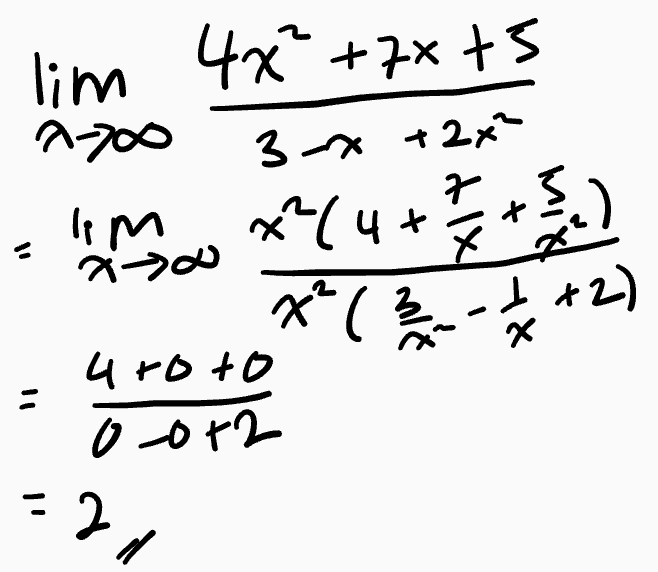 lim x→∞ (4x² + 7x + 5)/(3 - x + 2x²)
= lim x→∞ x²(4 + 7/x + 5/x²)/x²(3/x² - 1/x + 2)
= (4 + 0 + 0)/(0 - 0 + 2)
= 2 //